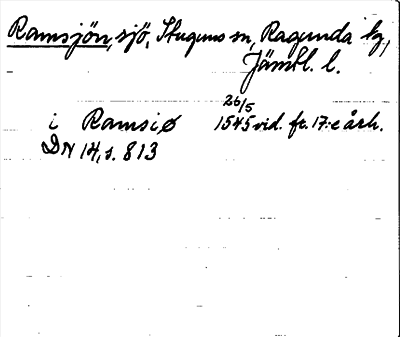 Ramsjön, sjö, Stuguns sn, Ragunda tg,
Jämtl. l.
i Ramsiø 26/5 1545 vid. fr. 17:e årh.
DN 14, s. 813